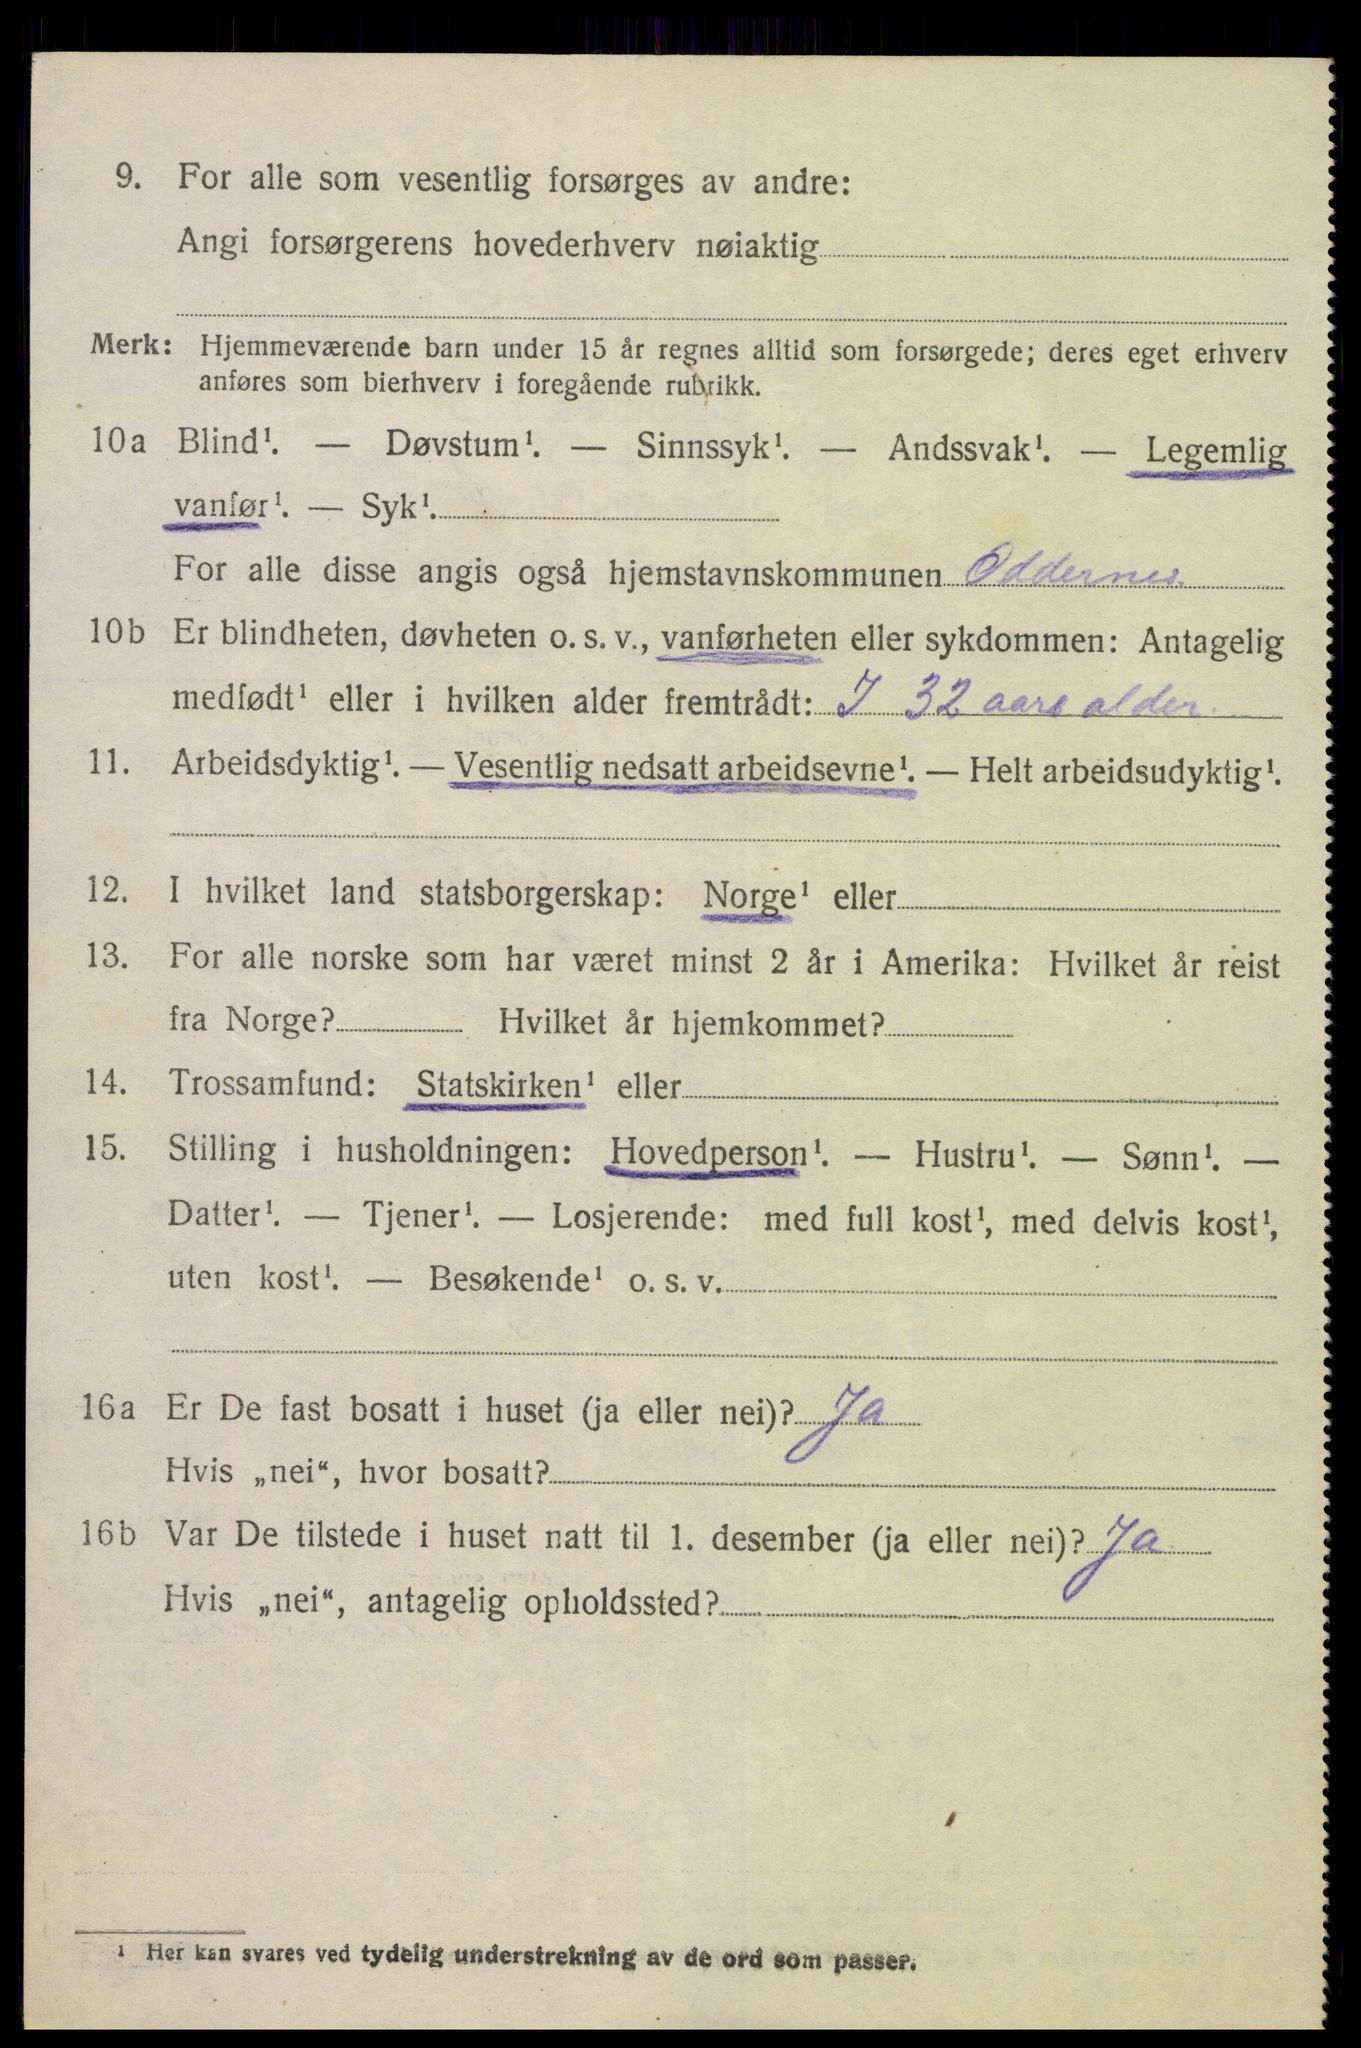 9. For alle som vesentlig forsørges av andre:
Angi forsørgerens hovederhverv nøiaktig
Merk: Hjemmeværende barn under 15 år regnes alltid som forsørgede; deres eget erhverv
anføres som bierhverv i foregående rubrikk.
10a Blind¹. — Døvstum¹. — Sinnssyk¹. — Andssvak¹. — Legemlig
vanfør¹. — Syk¹.
For alle disse angis også hjemstavnskommunen Oddernes.
10b Er blindheten, døvheten o. s. v., vanførheten eller sykdommen: Antagelig
medfødt¹ eller i hvilken alder fremtrådt: I 32 aars alder.
11. Arbeidsdyktig¹. — Vesentlig nedsatt arbeidsevne¹. — Helt arbeidsudyktig¹.
12. I hvilket land statsborgerskap: Norge¹ eller
13. For alle norske som har været minst 2 år i Amerika: Hvilket år reist
fra Norge? Hvilket år hjemkommet?
14. Trossamfund: Statskirken¹ eller
15. Stilling i husholdningen: Hovedperson¹. — Hustru¹. — Sønn¹. —
Datter¹. — Tjener¹. — Losjerende: med full kost¹, med delvis kost¹,
uten kost¹. — Besøkende¹ o. s. v.
16a Er De fast bosatt i huset (ja eller nei)? Ja
Hvis „nei“, hvor bosatt?
16b Var De tilstede i huset natt til 1. desember (ja eller nei)? Ja
Hvis „nei“, antagelig opholdssted?
¹ Her kan svares ved tydelig understrekning av de ord som passer.